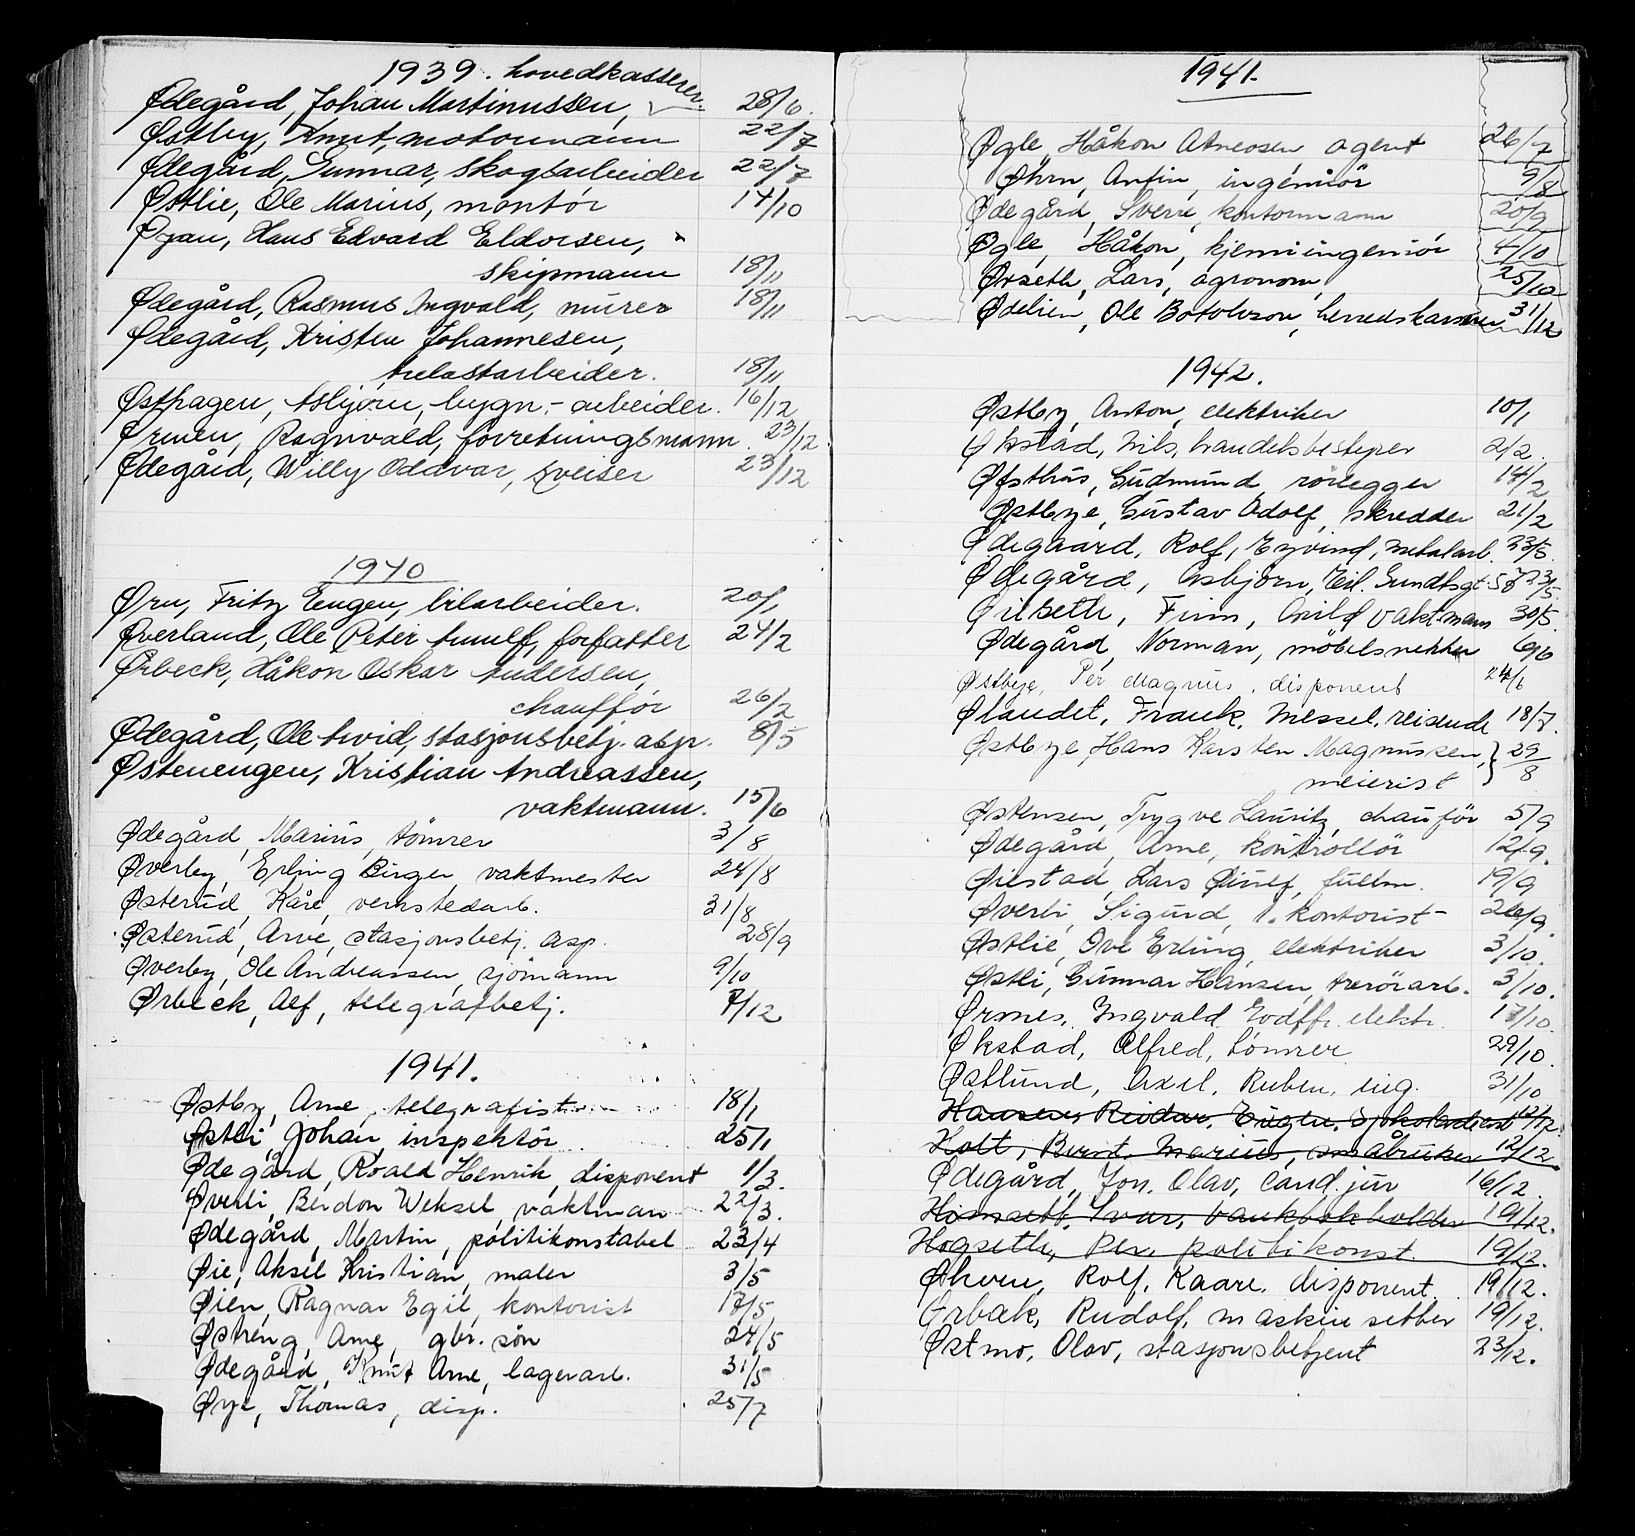 1939. hovedkasserer
Ødegård, Johan Martinussen, 28/6.
Østby, Knut, motormann 22/7
Ødegård, Gunnar, skogsarbeider 22/7
Østlie, Ole Marius, montør 14/10
Øyan, Hans Edvard Eldorsen,
skipmann 18/11
Ødegård, Rasmus Ingvald, murer 18/11
Ødegård, Kristen Johannesen,
trelastarbeider. 18/11
Østhagen, Asbjørn, bygn.-arbeider. 16/12
Ørmen, Ragnvald, forretningsmann. 23/12
Ødegård, Willy Oddvar, sveiser 23/12
1940
Ørn, Fritz Eugen, bilarbeider. 20/1
Øverland, Ole Peter Arnulf, forfatter 24/2
Ørbeck, Håkon Oskar Andersen,
chauffør 26/2
Ødegård, Ole Arvid, stasjonsbetj. asp. 8/5
Østenengen, Kristian Andreassen,
vaktmann. 15/6
Ødegård, Marius, tömrer 3/8
Øverby, Erling Birger, vaktmester 24/8
Østerud, Kåre, verkstedarb. 31/8
Østerud, Arve, stasjonsbetj. asp. 28/9
Øverby, Ole Andreassen, sjömann 9/10
Ørbeck, Alf, telegrafbetj. 7/12
1941.
Østby, Arne, telegrafist 18/1
Østli, Johan, inspektör 25/1
Ødegård, Roald Henrik, disponent 1/3.
Øverli, Berdon Weksel, vaktman 22/3.
Ødegård, Martin, politikonstabel 23/4
Øie, Aksel Kristian, maler 3/5
Øien, Ragnar Egil, kontorist 17/5
Østreng, Arne, gbr. sön 24/5
Ødegård, Knut Arne, lagerarb. 31/5
Øye, Thomas, disp. 25/7
1941.
Øgle, Håkon Atneosen, agent 26/7
Øhrn, Anfin, ingeniör 9/8
Ødegård, Sverre, kontormann 20/9
Øgle, Håkon, kjemiingeniör 4/10
Ørseth, Lars, agronom, 25/10
Ødelien, Ole Botolvson, herredskasserer 31/12
1942.
Østby, Anton, elektriker 10/1
Økstad, Nils, handelsbestyrer 2/2.
Øfsthus, Gudmund, rörlegger 14/2
Østbye, Gustav Adolf, skredder 21/2
Ødegaard, Rolf, Eyvind, metalarb. 23/5.
Ødegård, Asbjörn, Eil. Sundtsgt. 23/5.
Finn, vaktmann 30/5.
Ødegård, Norman, möbelsnekker 6/6
Østbye, Per Magnus, disponent 24/6
Ølandet, Frank. Messel. reisende 18/7.
Østbye, Hans Karsten Magnussen, } 29/8
meierist
Østensen, Trygve Lauritz, chauför 5/9
Ødegård, Arne, kontrollör 12/9.
Ørestad, Lars fullm. 19/9
Øverli, Sigurd, 1. kontorist 26/9.
Østlie, Ove Erling, elektriker 3/10.
Østli, Gunnar Hansen, 3/10.
Ørmes, Ingvald Godtfr. elektr. 17/10.
Økstad, Alfred, tömrer 29/10.
Østlund, Axel, Ruben, ing. 31/10
Hansen, Reidar, Eugen, 12/12.
Holt, Bernt. Marius, småbruker 12/12.
Ødegård, Jon. Olav, Cand. jur 16/12.
Himsett, Ivar, bankbokholder 19/12.
Høgseth, Per. politikonst. 19/12.
Øhren, Rolf, Kaare, disponent. 19/12.
Ørbæk, Rudolf, maskinsetter 19/12.
Østmo, Olav, stasjonsbetjent 23/12.